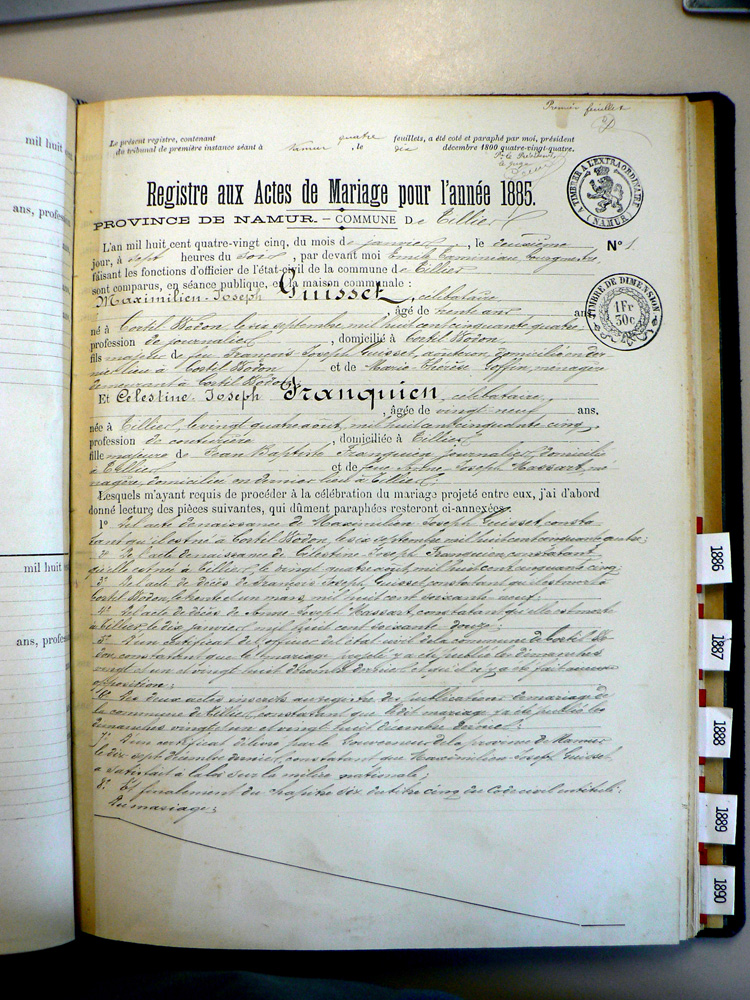 Premier feuillet
Le présent registre, contenant quatre feuillets, a été coté et paraphé par moi, président
du tribunal de première instance séant à Namur, le dix décembre 1800 quatre-vingt-quatre.
Registre aux Actes de Mariage pour l'année 1885.
PROVINCE DE NAMUR. — COMMUNE De Tillier
TIMBRE A L'EXTRAORDINAIRE
(NAMUR)
N° 1.
L'an mil huit cent quatre-vingt cinq, du mois de janvier, le deuxième
jour, à sept heures du soir, par devant moi Emile Caminiau, bourgmestre,
faisant les fonctions d'officier de l'état-civil de la commune de Tillier
sont comparus, en séance publique, en la maison communale :
Maximilien-Joseph Guisset, célibataire
, âgé de trente ans
TIMBRE DE DIMENSION
1Fr
30c
né à Cortil Wodon, le six septembre mil huit cent cinquante quatre
profession de journalier, domicilié à Cortil Wodon,
fils majeur de feu François-Joseph Guisset, domicilié en der
nier lieu à Cortil Wodon et de Marie Thérèse Goffin, ménagère
demeurant à Cortil Wodon;
Et Célestine Joseph Franquien, célibataire,
, âgée de vingt neuf ans,
née à Tillier, le vingt quatre août, mil huit cent cinquante cinq,
profession de couturière, domiciliée à Tillier
fille majeure de Jean Baptiste Franquien, journalier, domicilié
à Tillier et de feue Anne Joseph Massart, mé-
nagère, domiciliée en dernier lieu à Tillier;
Lesquels m'ayant requis de procéder à la célébration du mariage projeté entre eux, j'ai d'abord
donné lecture des pièces suivantes, qui dûment paraphées resteront ci-annexées.
1° De l'acte de naissance de Maximilien Joseph Guisset, consta-
tant qu'il est né à Cortil Wodon, le six septembre mil huit cent cinquante quatre;
2° De l'acte de naissance de Célestine Joseph Franquien constatant
qu'elle est née à Tillier, le vingt quatre août, mil huit cent cinquante cinq;
3° De l'acte de décès de François Joseph Guisset constatant qu'il est mort à
Cortil Wodon, le trente et un mars, mil huit cent soixante neuf;
4° De l'acte de décès de Anne Joseph Massart, constatant qu'elle est morte
à Tillier, le dix janvier mil huit cent soixante douze;
5° D'un certificat de l'officier de l'état civil de la commune de Cortil Wo-
don, constatant que le mariage projeté y a été publié les dimanches
vingt et un et vingt huit décembre dernier et qu'il n'y a été fait aucune
opposition;
6° Des deux actes inscrits au registre des publications de mariage de
la commune de Tillier, constatant que le dit mariage y a été publié les
dimanches vingt et un et vingt huit décembre dernier;
7° D'un certificat délivré par le Gouverneur de la province de Namur
le dix sept décembre dernier, constatant que Maximilien Joseph Guisset
a satisfait à la loi sur la milice nationale;
8° Et finalement du chapitre six du titre cinq du Code civil intitulé:
Du mariage;
mil huit
ans, profess
mil huit
ans, profess
1886
1887
1888
1889
1890